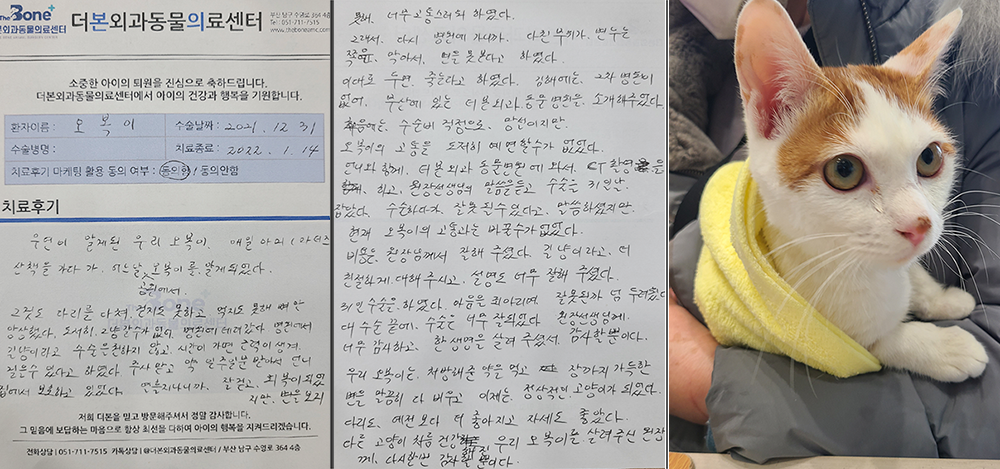 The Bone
더본외과동물의료센터
더본외과동물의료센터
부산 남구 수영로 364 4층
Tel : 051-711-7515
www.thebonamc.com
소중한 아이의 퇴원을 진심으로 축하드립니다.
더본외과동물의료센터에서 아이의 건강과 행복을 기원합니다.
환자이름 : 오복이 수술날짜 : 2021. 12 31
수술병명 : 치료종료 : 2022. 1. 14
치료후기 마케팅 활용 동의 여부 : 동의함 / 동의안함
치료후기
우연이 알게된 우리 오복이. 매일 아침 1 라운드
산책을 가다가. 어느날 오복이를 알게되었다.
공원에서.
그런데 다리를 다쳐, 걷지도 못하고 먹지도 못해 뼈만
앙상했다. 도저히, 그냥갈수가 없어, 병원에 데려갔다 병원에서
길냥이라고 수술은 권하지 않고, 시간이 가면 근력이 생겨,
걸을수 있다고 하였다. 주사 맞고 약 일주일분 받아서 언니
집에서 보호하고 있었다. 몇일 지나니까, 잘걷고, 회복이 되었
지만, 변을 보지
저희 더본을 믿고 방문해주셔서 정말 감사합니다.
그 믿음에 보답하는 마음으로 항상 최선을 다하여 아이의 행복을 지켜드리겠습니다.
전화상담 | 051-711-7515 카톡상담 | @더본외과동물의료센터 / 부산 남구 수영로 364 4층
못해. 너무 고통스러워 하였다.
그래서, 다시 병원에 가니까. 다친 부위가, 변누는
쪽을, 막아서, 변을 못본다고 하였다.
이대로 두면, 죽는다고 하였다. 김해에는, 2차 병원이
없어, 부산에 있는 더본외과, 동물병원을, 소개해주었다.
처음에는, 수술비 걱정으로, 망선이지만.
오복이의 고통을 도저히 외면할수가 없었다.
언니와 함께, 더 본외과 동물병원에 와서, CT 촬영을
하고, 원장선생님의 말씀을듣고 수술을 하는날,
잡았다. 수술하다가, 잘못될수있다고, 말씀하셨지만.
현재 오복이의 고통과는 바꿀수가 없었다.
비용은, 원장님께서 잘해 주셨다. 길냥이라고, 더
친절하게 대해 주시고, 설명도 너무 잘해 주셨다.
수술을 하였다. 마음을 졸이며, 잘못될까 넘 두려웠다
대 수술 끝에, 수술은 너무 잘되었다 원장선생님께.
너무 감사하고, 한 생명을 살려 주셨서, 감사할뿐이다.
우리 오복이는, 처방해준 약을 먹고 장까지 가득한
변을 말끔히 다 버우고 이제는, 정상적인 고양이가 되었다.
다리도, 예전보다 더 좋아지고 자세도 좋았다.
다른 고양이 처음 건강해진 우리 오복이를 살려주신 원장
께, 다시한번 감사할뿐이다.